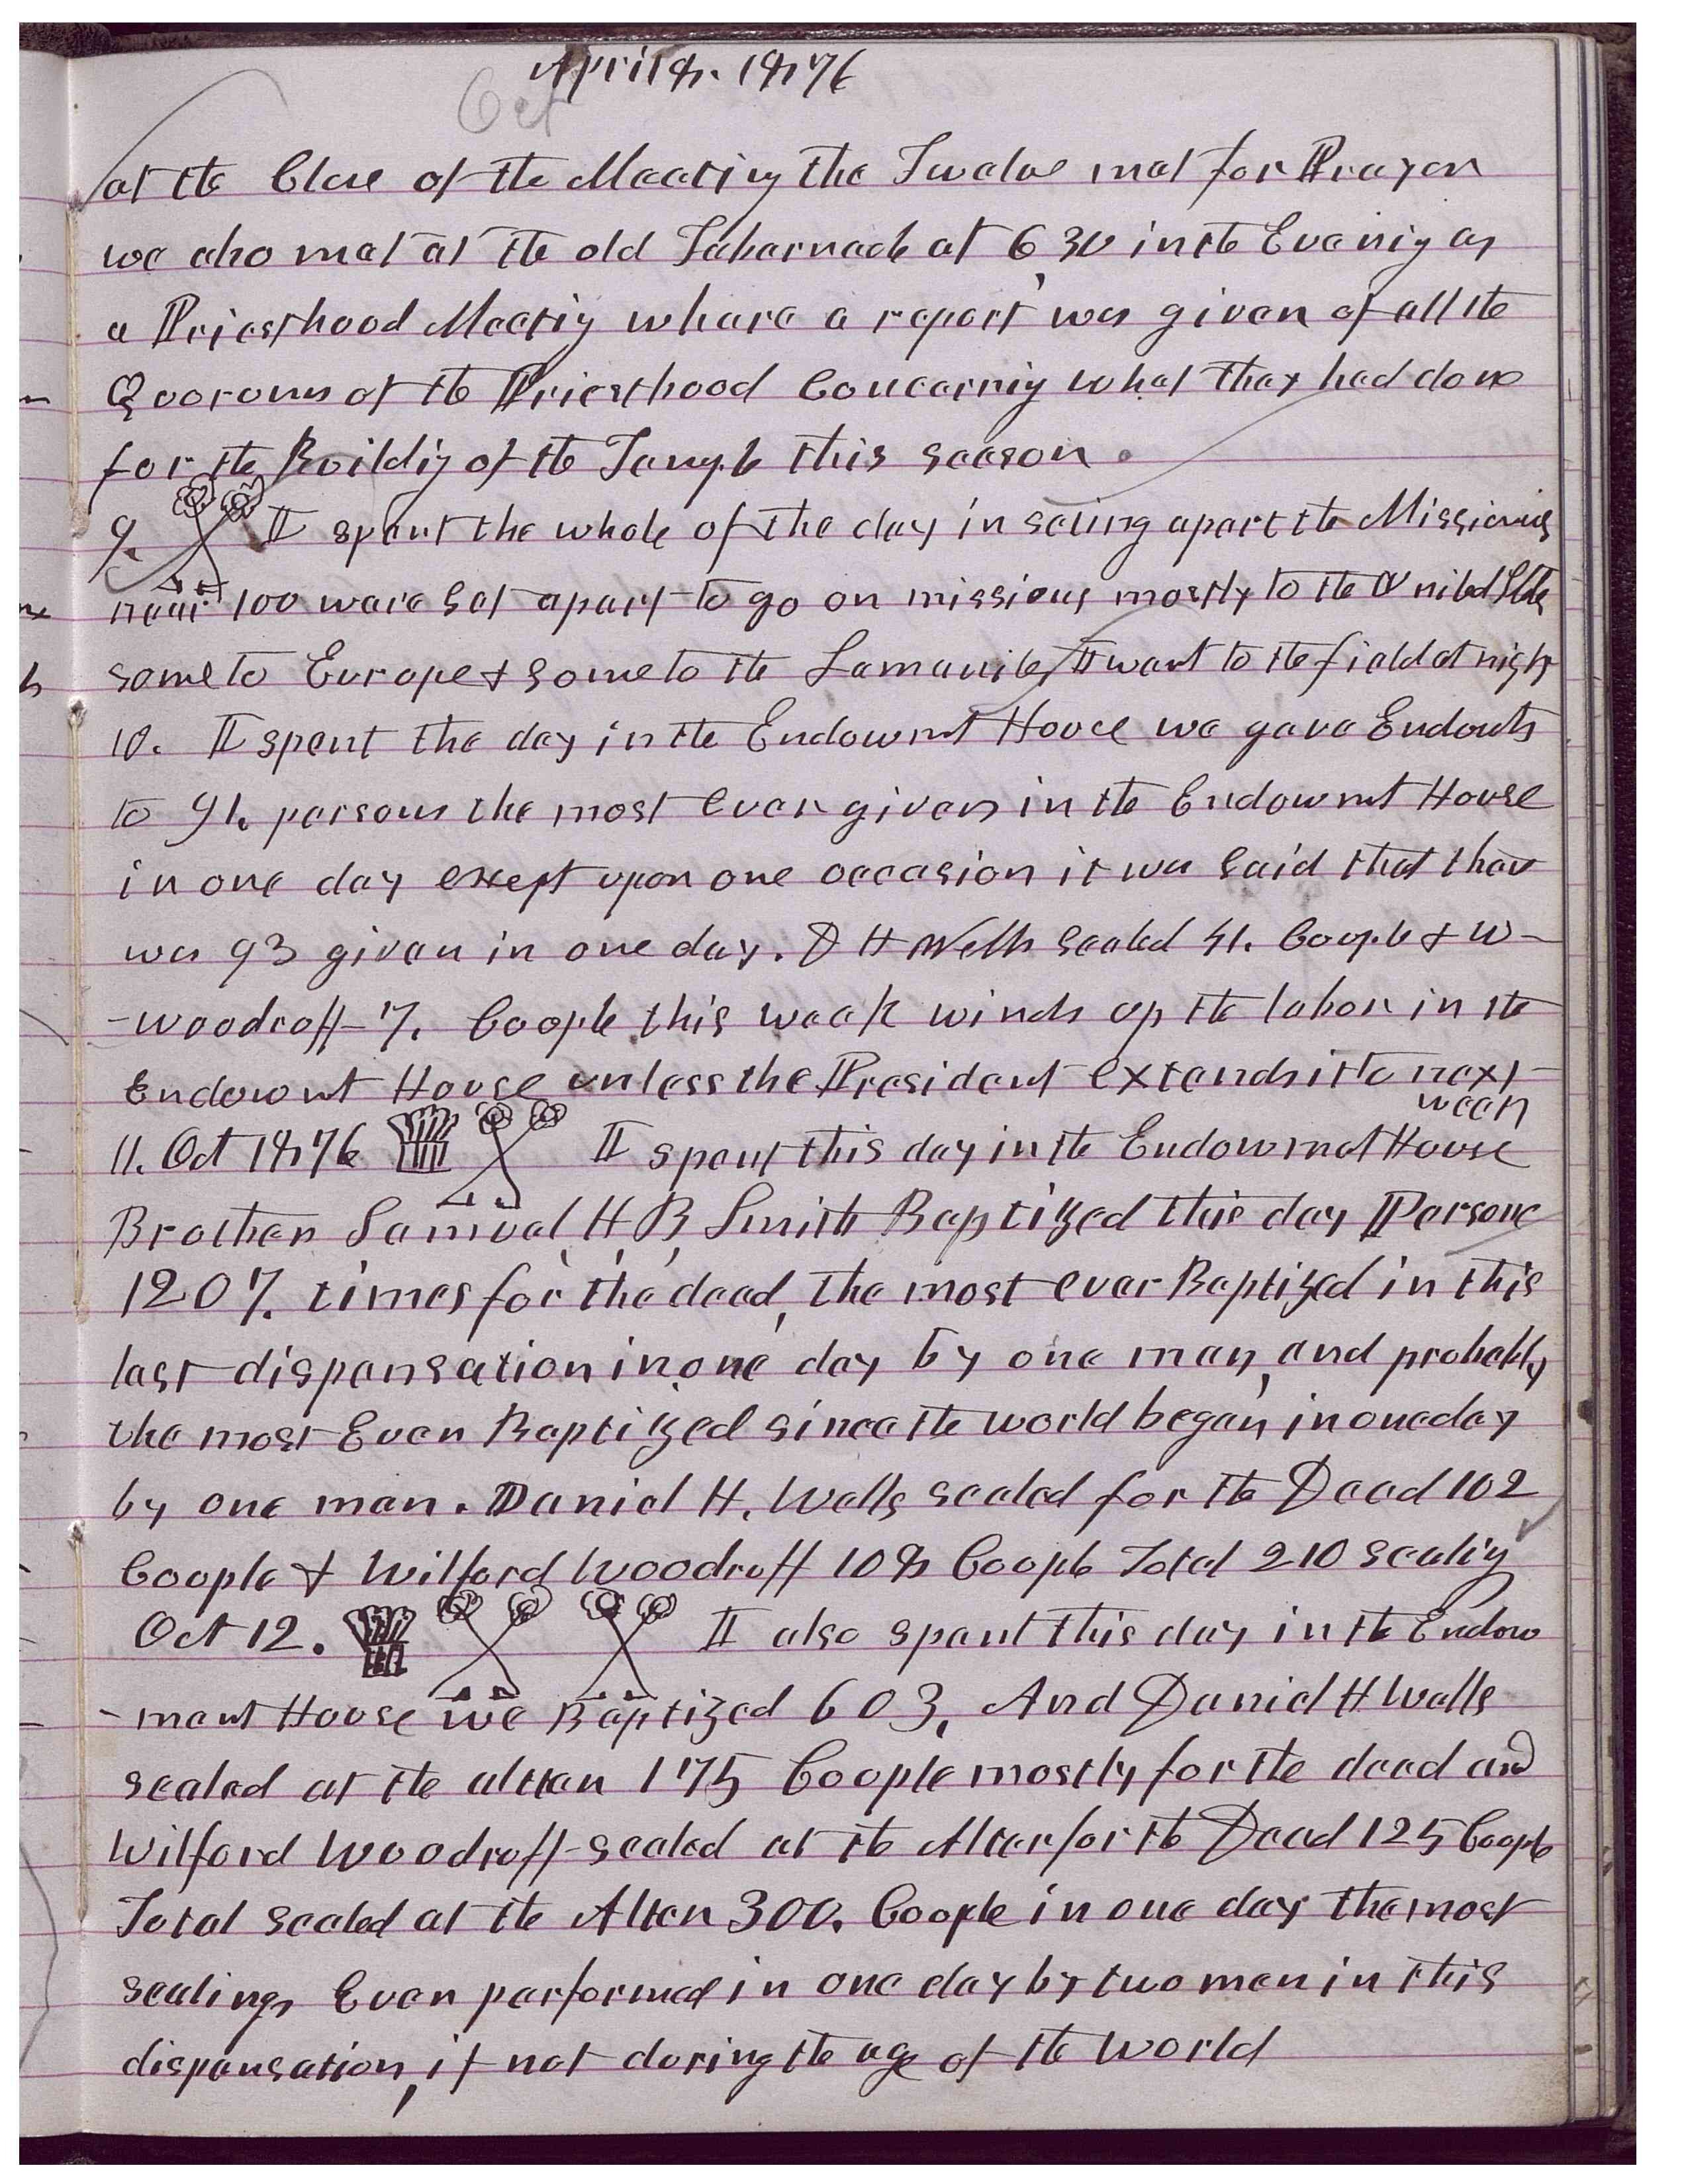 April 8. 1876
Oct
at the Close of the Meeting the Twelve met for Prayer
we also met at the old Tabernacle at 6,30 in the Evening as
a Priesthood Meeting whare a report was given of all the
Quorums of the Priesthood Concerning what they had done
for the Building of the Temple this season.
9. I spent the whole of the day in seting apart the Missionies
near 100 ware set apart to go on missions mostly to the United States
some to Europe & some to the Lamanites I went to the field at night
10. I spent the day in the Endowmt House we gave Endowmts
to 91. persons the most ever given in the Endowmt House
in one day except upon one occasion it was said that thare
was 93 given in one day. D H Wells sealed 41. Couple & W-
-woodruff- 7. Couple this week winds up the labor in the
Endowmt House unless the President extends it to next-
week
11. Oct 1876 I spent this day in the Endowmet House
Brother Samuel, H, B, Smith Baptized this day Persons
1207. times for the dead, the most ever Baptized in this
last dispensation in one day by one man, and probably
the most Ever Baptized since the world began in one day
by one man. Daniel H. Wells sealed for the Dead 102
Couple & Wilford Woodruff 108 Couple Total 210 sealing
Oct 12. I also spent this day in the Endow
-ment House we Baptized 603, And Daniel H Wells
sealed at the alter 175 Couple mostly for the dead and
Wilford Woodruff- sealed at the Alter for the Dead 125 Couple
Total sealed at the Alter 300. Couple in one day the most
sealings Ever performed in one day by two men in this
dispensation, if not during the age of the world